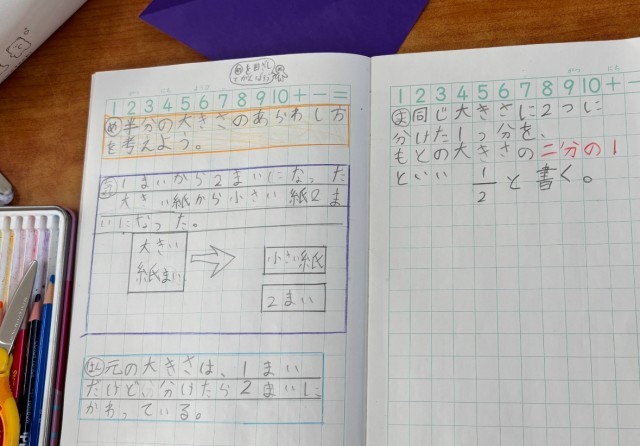 めを目ざして
1 2 3 4 5 6 7 8 9 10 + - =
め 半分の大きさのあらわし方
を考えよう。
1まいから2まいになった
大きい紙から小さい紙2ま
いになった。
大きい
紙まい
小さい紙
2まい
元の大きさは、1まい
だけど、分けたら2まいに
かわっている。
1 2 3 4 5 6 7 8 9 10 + - =
ま 同じ大きさに2つに
分けた1つ分を、
もとの大きさの二分の1
といい 1/2 と書く。